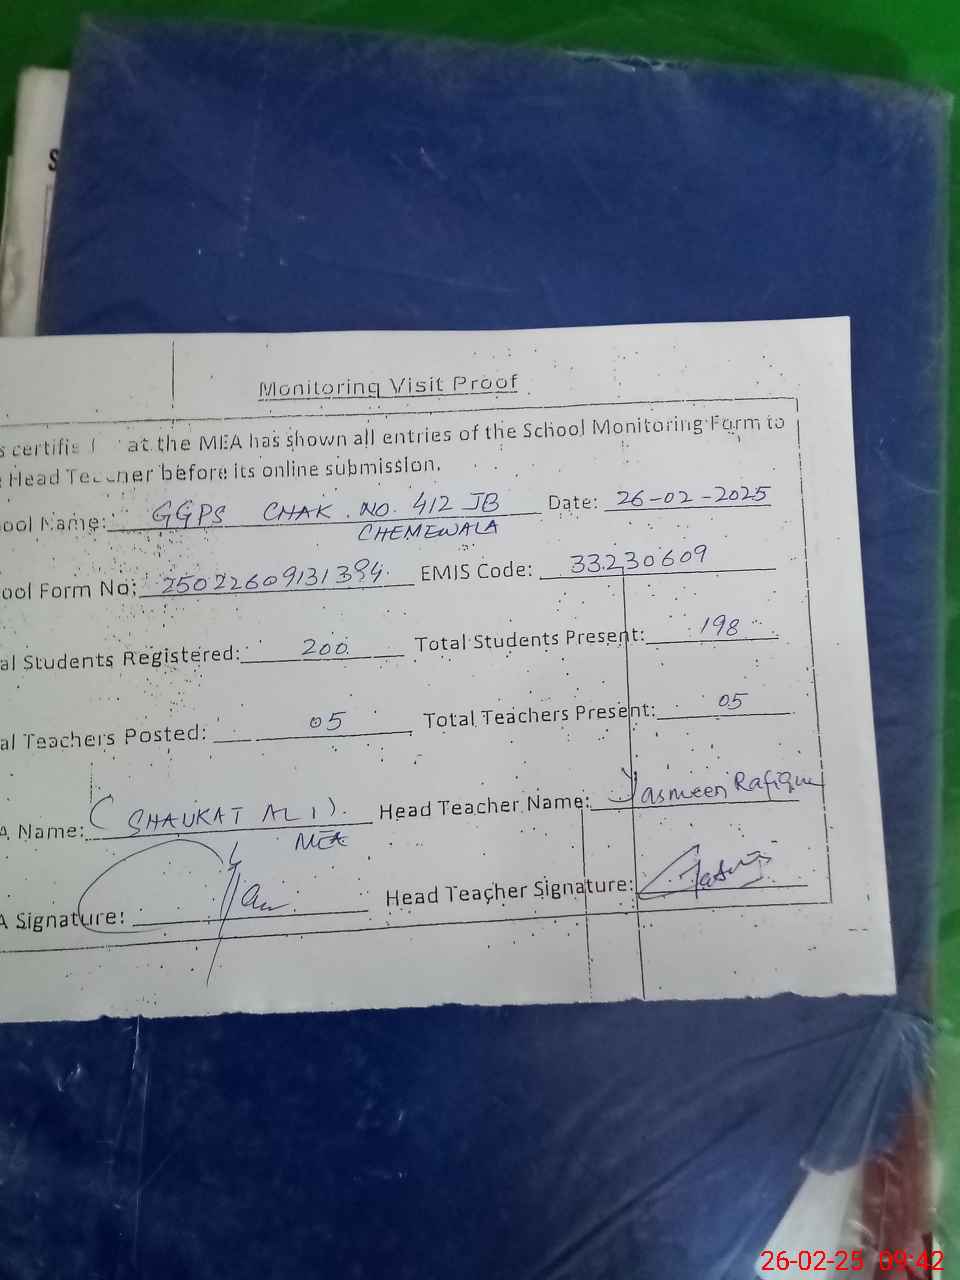 S
Monitoring Visit Proof
s certifie at the MEA has shown all entries of the School Monitoring Form to
Head Teacher before its online submission.
ool Name: GGPS CHAK NO. 412 JB Date: 26-02-2025
CHEMEWALA
ool Form No: 25022609131394 EMIS Code: 33230609
al Students Registered: 200 Total Students Present: 198
al Teachers Posted: 05 Total Teachers Present: 05
A Name: (SHAUKAT ALI). Head Teacher Name: Yasmeen Rafique
MEA
A Signature: Head Teacher Signature:
26-02-25 09:42